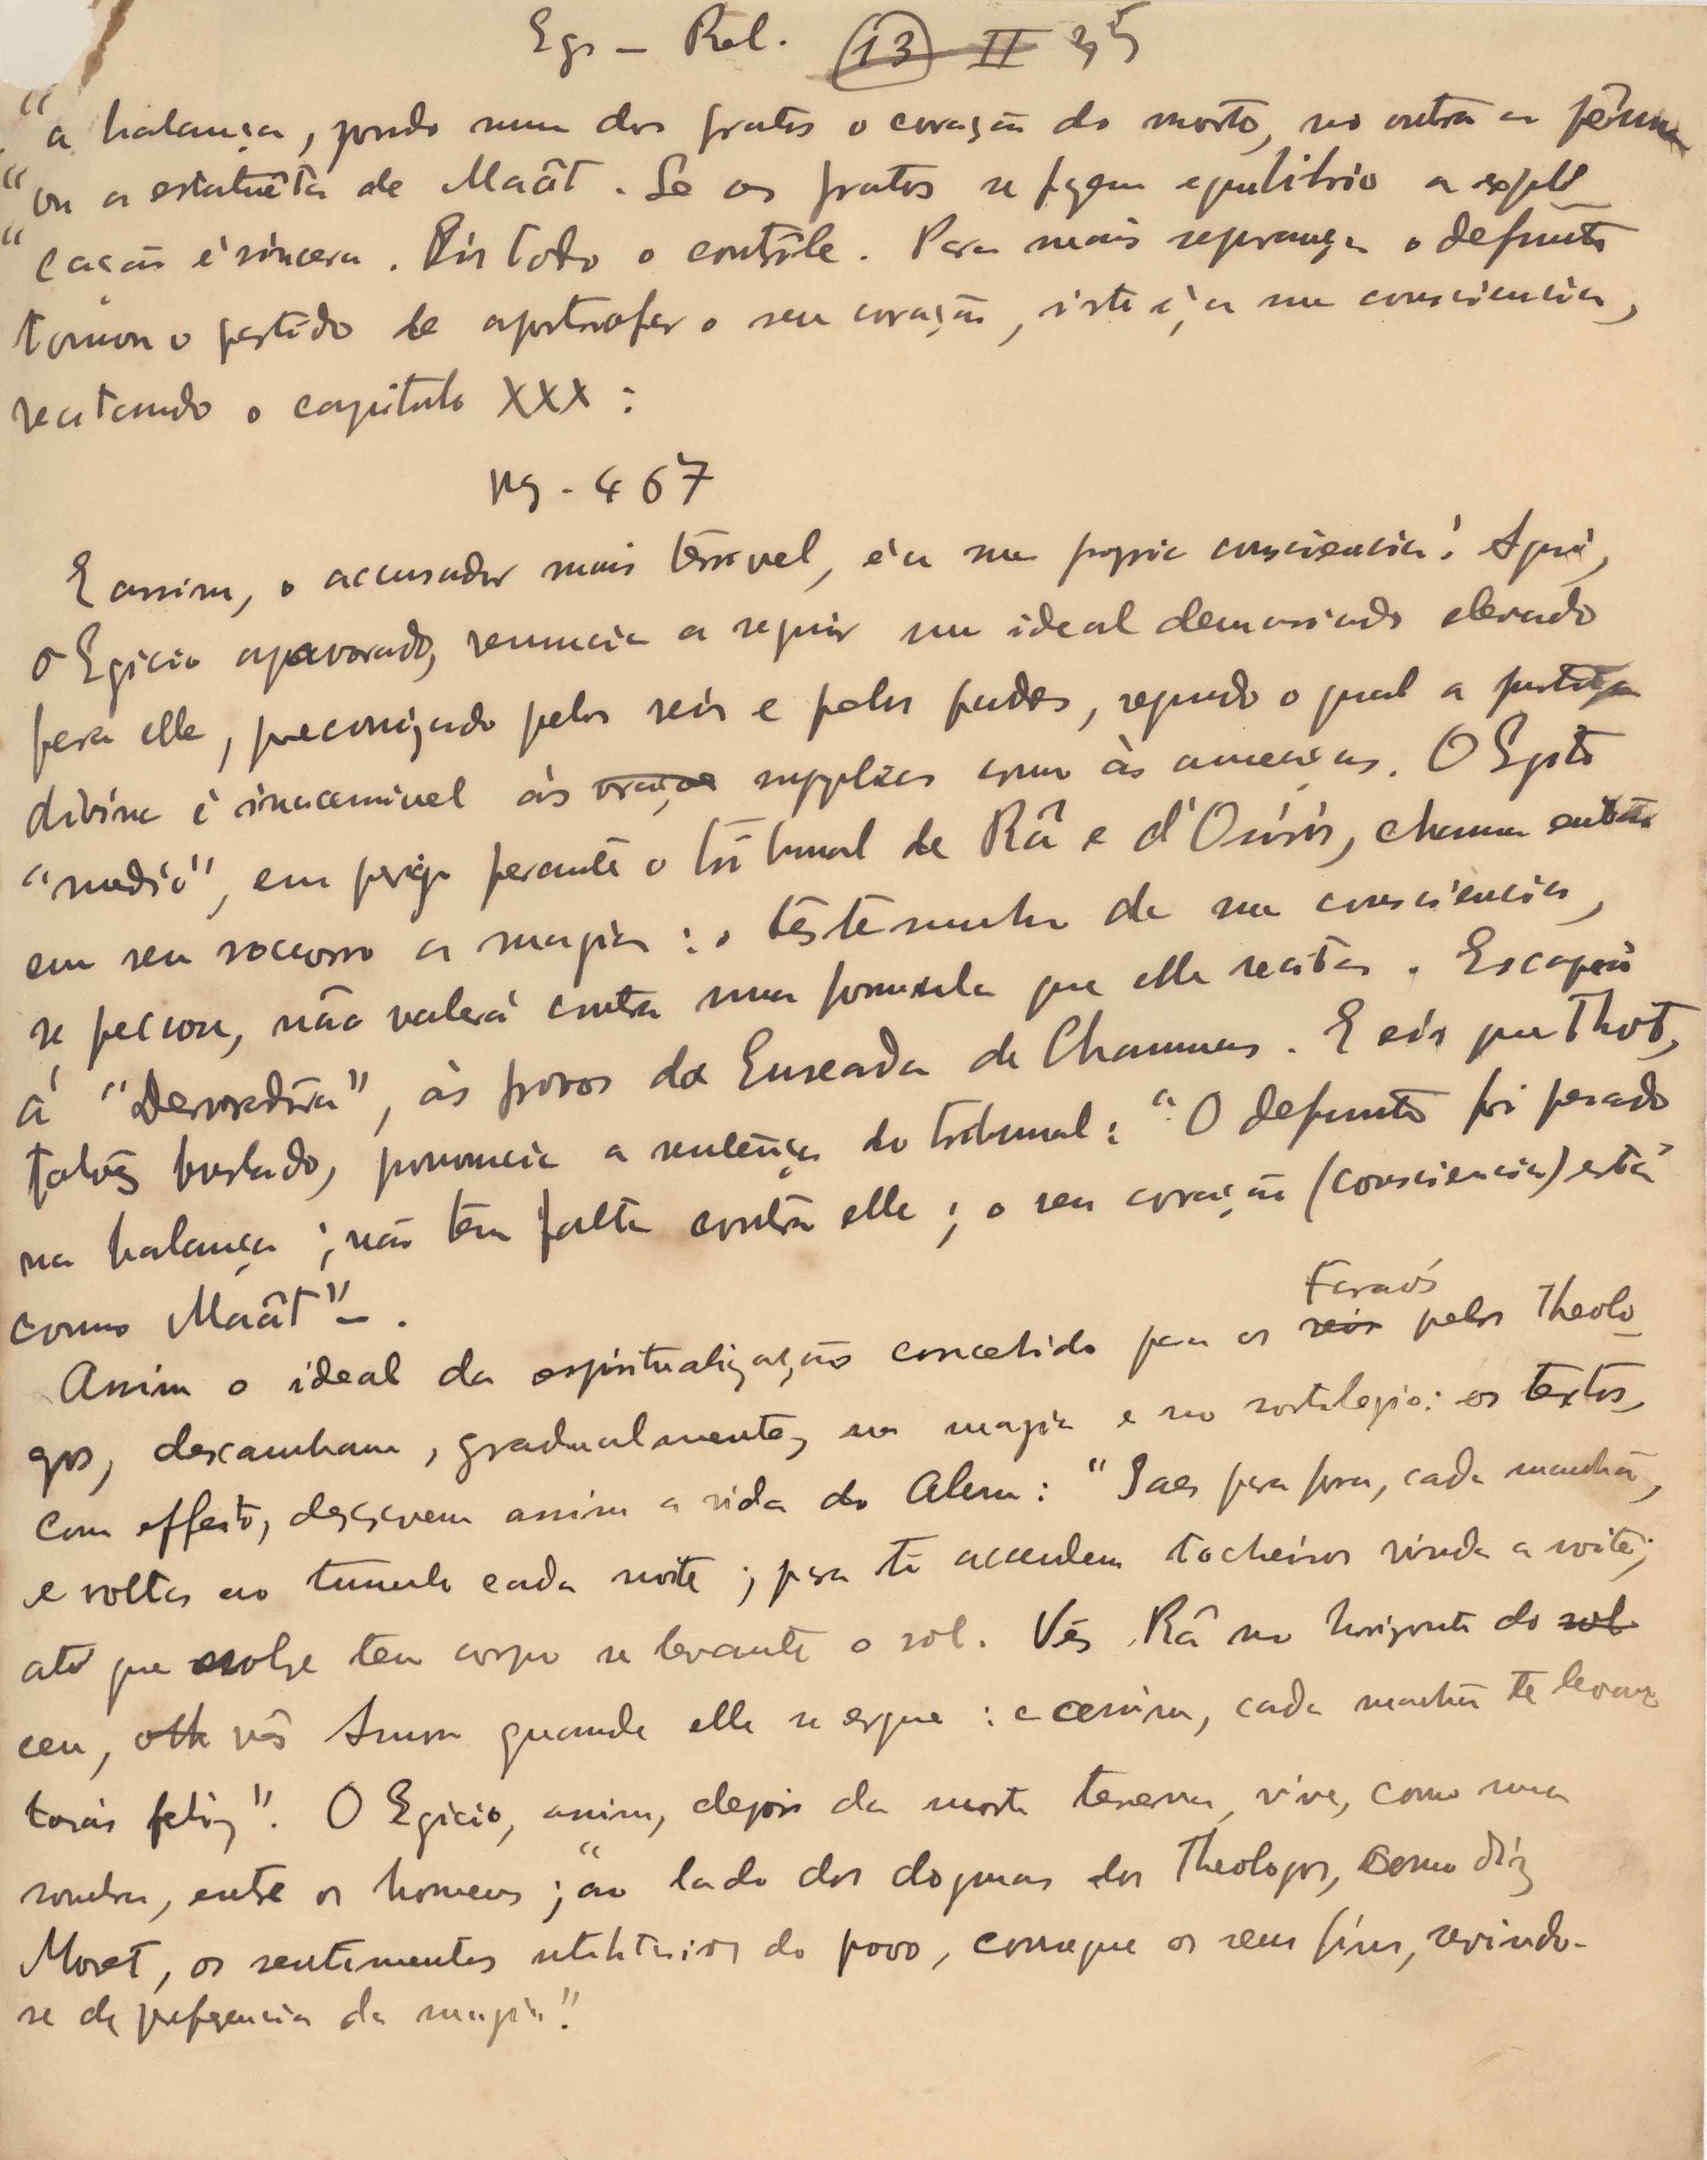 Egp – Rel. 13 II 35
"a balança, pondo num dos pratos o coração do morto, no outro a penna
"ou a estatueta de Maât. Se os pratos se fazem equilibrio a expli
"cação é sincera. Eis todo o contrôle. Para mais segurança o defunto
tomou o partido de apostrofar o seu coração, isto é, a sua consciencia,
recitando o capitulo XXX :
pg - 467
E assim, o accusador mais terrivel, é a sua propria consciencia! Aqui,
o Egicio apavorado, renuncia a seguir um ideal demasiado elevado
para elle, preconizado pelos reis e pelos padres, segundo o qual a justiça
divina é inaccessivel ás supplicas como ás ameaças. O Egito
"medio", em perigo perante o tribunal de Râ e d'Osiris, chama então
em seu soccorro a magia : o testemunho de sua consciencia,
se peccou, não valerá contra uma formula que elle recita. Escapou
á "Devoradora", ás provas da Enseada de Chammas. E eis que Thot,
talvez burlado, pronuncia a sentença do tribunal : "O defunto foi pesado
na balança ; não tem falta contra elle ; o seu coração (consciencia) está
como Maât" – .
Assim o ideal da espiritualização concebido para os reis Faraós pelos Theolo
gos, descambam, gradualmente, na magia e no sortilegio: os textos,
com effeito, descrevem assim a vida do Alem : "Saes para fora, cada manhã,
e voltas ao tumulo cada noite ; para ti accendem tocheiros vinda a noite ;
até que sobre teu corpo se levante o sol. Vês Râ no horizonte do sol
ceu, vês Amon quando elle se ergue : e assim, cada manhã te levan
tarás feliz". O Egicio, assim, depois da morte terrena, vive, como uma
sombra, entre os homens ; "ao lado dos dogmas dos Theologos, como diz
Moret, os sentimentos utilitarios do povo, consegue os seus fins, servindo-
se de preferencia da magia".